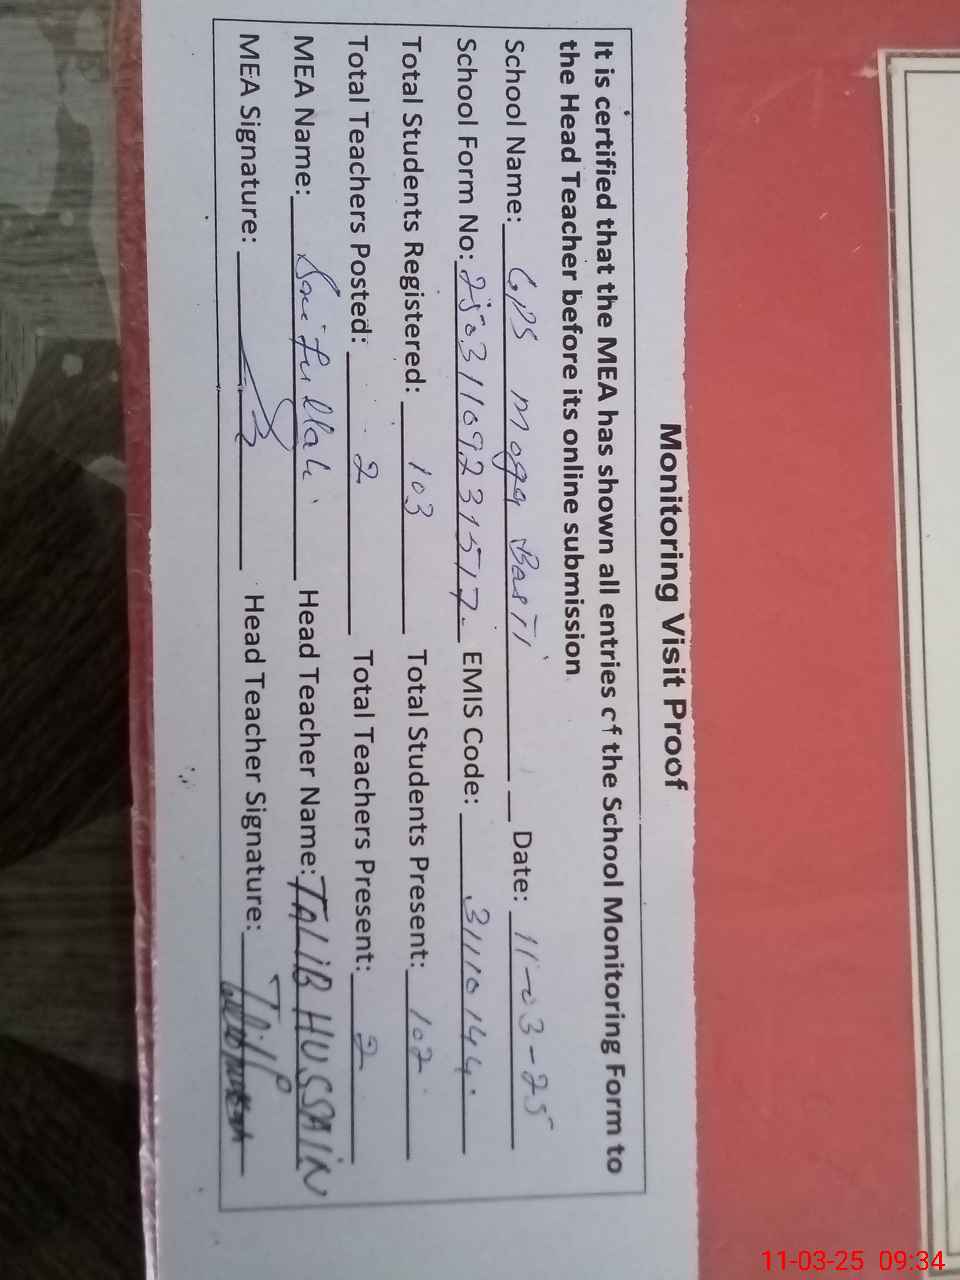 Monitoring Visit Proof
It is certified that the MEA has shown all entries of the School Monitoring Form to
the Head Teacher before its online submission
School Name: GPS Moga Basti Date: 11-03-25
School Form No: 25031109231517 EMIS Code: 31110144
Total Students Registered: 103 Total Students Present: 102
Total Teachers Posted: 2 Total Teachers Present: 2
MEA Name: Saifullah Head Teacher Name: TALIB HUSSAIN
MEA Signature: Head Teacher Signature:
11-03-25 09:34